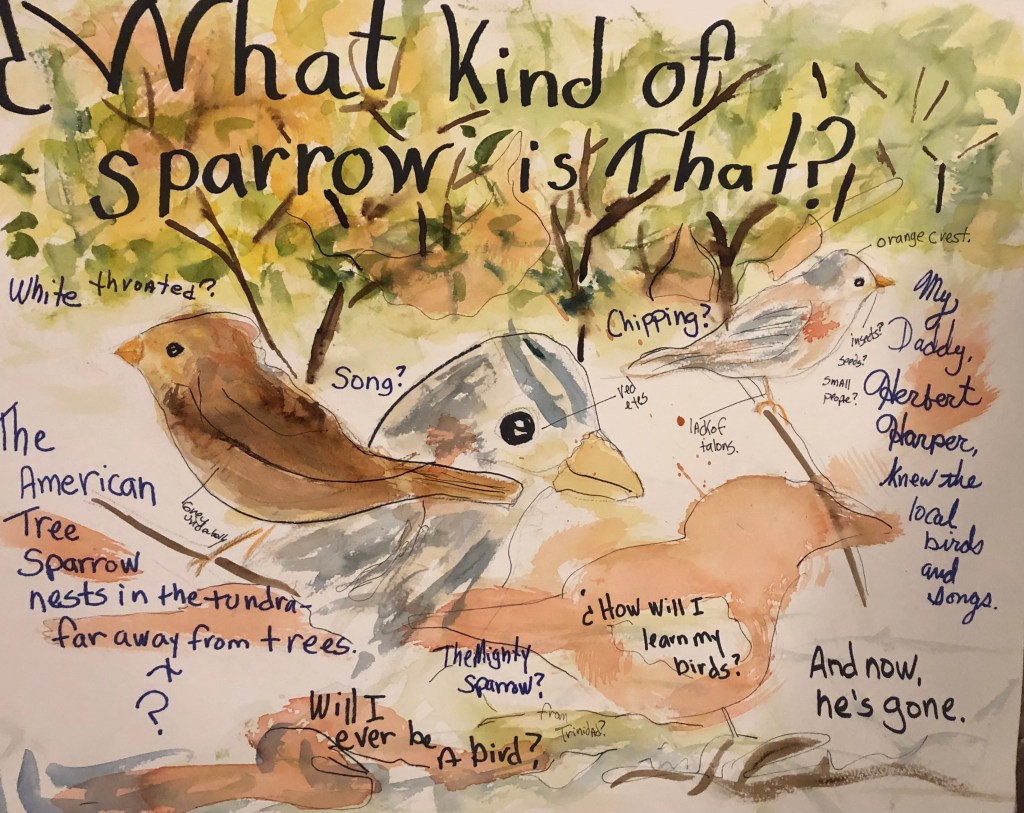 ¿What Kind of
sparrow is That?
White throated?
Song?
Chipping?
orange crest.
red
eyes
insects?
seeds?
small
people?
lack of
talons.
My
Daddy,
Herbert
Harper,
knew the
local
birds
and
songs.
The
American
Tree
Sparrow
nests in the tundra-
far away from trees.
?
Grey
underbelly
¿How will I
learn my
birds?
The Mighty
Sparrow?
from
Trinidad?
Will I
ever be
A bird?
And now,
he's gone.